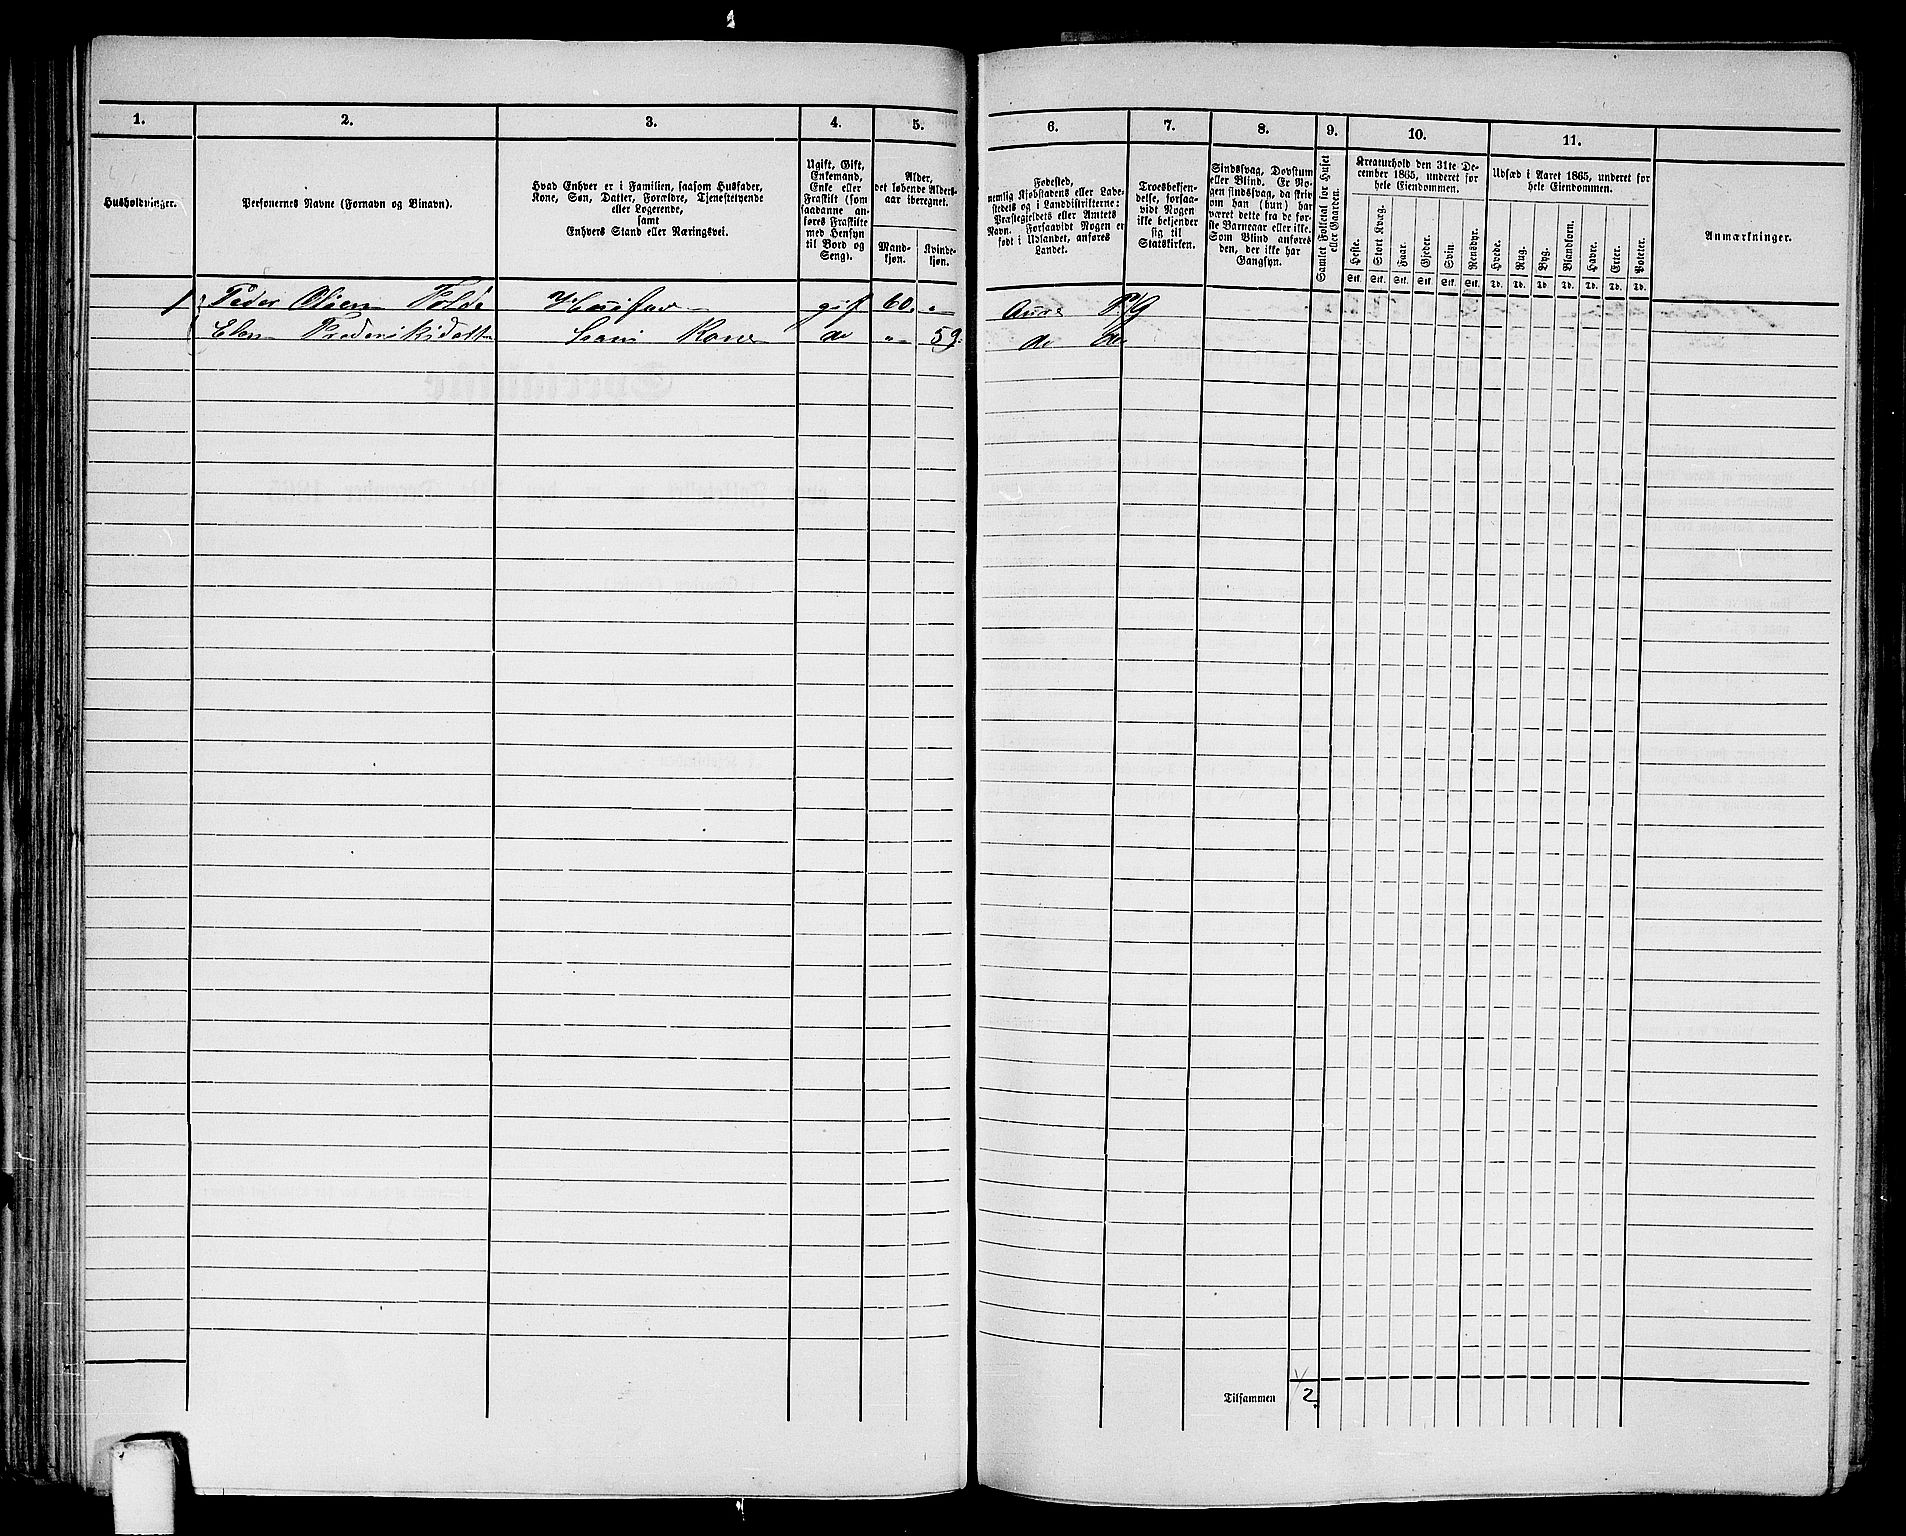 1.
2.
3.
4.
5.
6.
7.
8.
9.
10.
11.
Husholdninger.
Personernes Navne (Fornavn og Binavn).
Hvad Enhver er i Familien, saasom Husfader,
Kone, Søn, Datter, Forældre, Tjenestetyende
eller Logerende,
samt
Enhvers Stand eller Næringsvei.
Ugift, Gift,
Enkemand,
Enke eller
Fraskilt (som
saadanne an-
føres Fraskilte
med Hensyn
til Bord og
Seng).
Alder,
det løbende Alders-
aar iberegnet.
Mand-
kjøn.
Kvinde-
kjøn.
Fødested,
nemlig Kjøbstadens eller Lade-
stedets og i Landdistrikterne:
Præstegjeldets eller Amtets
Navn. Forsaavidt Nogen er
født i Udlandet, anføres
Landet.
Troesbekjen-
delse, forsaa-
vidt Nogen
ikke bekjender
sig til
Statskirken.
Sindssvag, Døvstum
eller Blind. Er No-
gen sindssvag, da skriv
om han (hun) har
været dette fra de før-
ste Barneaar eller ikke.
Som Blind anføres
den, der ikke har
Gangsyn.
Samlet Folketal for Huset
eller Gaarden.
Kreaturhold den 31te De-
cember 1865, underet for
hele Eiendommen.
Heste.
Stort Kvæg.
Faar.
Gjeder.
Svin.
Rensdyr.
Stk. Stk. Stk. Stk. Stk. Stk.
Udsæd i Aaret 1865, underet for
hele Eiendommen.
Hvede.
Rug.
Byg.
Blandkorn.
Havre.
Erter.
Poteter.
Td. Td. Td. Td. Td. Td. Td.
Anmærkninger.
1 Peder Folde gif 60. „ Aure P/G
Elen Frederiksdatt Kone do „ 59. do do
Tilsammen 2.